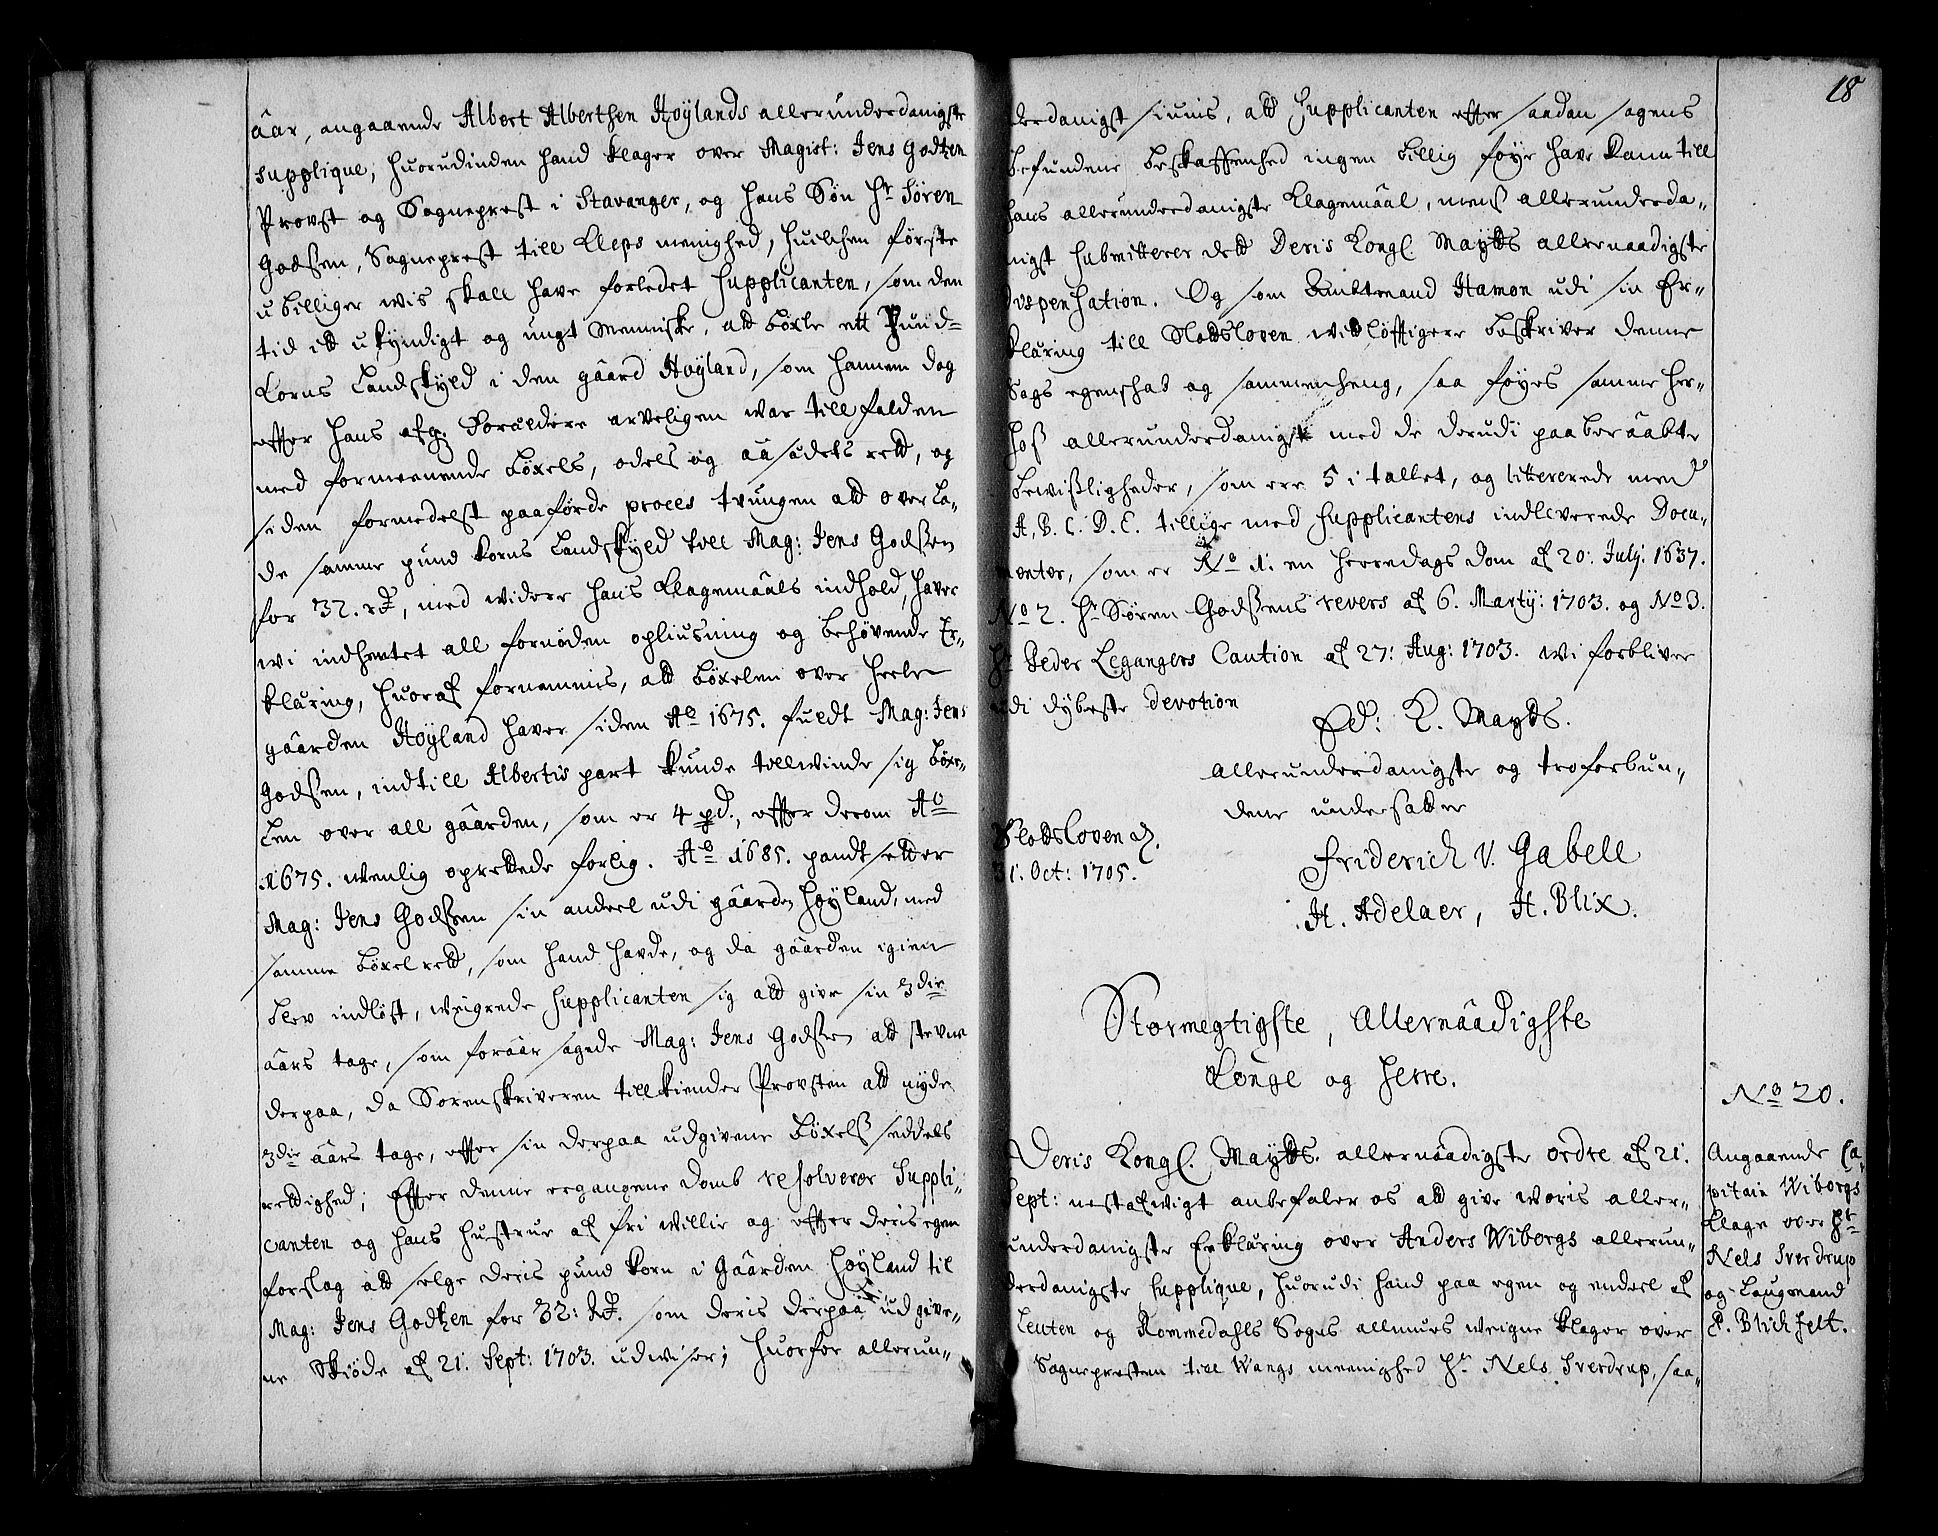 åar, angaaende Albert Alberthsen Höylands allerunderdanigste
supplique, huorudinden hand klager over Magist: Jens Godtzen
Provst og Sogneprest i Stavanger, og hans Søn Hr Sören
Godssen, Sogneprest till Kleps menighed, huilchen förste
ubilliger wis skall have forledet supplicanten, som den
tid itt ukyndigt og ungt Menniske, att böxle ett Pund-
Korns Landskyld i den gaard Höyland, som hannem dog
effter hans afg: Forældere arveligen war tillfalden
med formeenende böxels, odels og aasædets rett, og
siden formedelst paaförde proces tvungen att overla-
de samme pund korns Landskyld till Mag: Jens Godssen
for 32. rd, med widere hans Klagemaals indhold, haver
wi indhentet all fornöden opliusning og behövende Er-
klæring, huoraf fornemmis, att böxelen over heele
gaarden Höyland haver siden Ao 1675. fuldt Mag: Jens
Godssen, indtill Albertis part kunde tillwinde sig böxe-
len over all gaarden, som er 4 pd., effter derom Ao
1675. wenlig oprettede forlig. Ao 1685. pandtsetter
Mag: Jens Godssen sin andeel udi gaarden Höyland, med
samme böxelrett, som hand havde, og da gaarden igien
blev indlöst, weigrede supplicanten sig att give sin 3die
aars tage, som foraarsagede Mag: Jens Godssen att stevne
derpaa, da Sorenskriveren tillkiender Provsten att nyde
3die aars tage, effter sin derpaa udgivene böxelsseddels
rettighed; Effter denne ergangene domb resolverer suppli-
canten og hans hustrue af fri willie og effter deris egen
forslag att selge deris pund korn i Gaarden Höyland til
Mag: Jens Godtzen for 32: rd. som deris derpaa udgive-
ne Skiöde af 21. Sept: 1703. udwiser; huorfor allerun-
18
derdanigst siunis, att supplicanten effter saadan sagens
befundene beskaffenhed ingen billig föye have kann till
hans allerunderdanigste Klagemaal, mens allerunderda-
nigst submitterer dett Deris Kongl. Maytts allernaadigste
dispensation. Og som Amtmand Hamon udi sin Er-
klæring till Slottsloven widtlöfftigere beskriver denne
Sags egenskab og sammenheng, saa föyes samme her-
hos allerunderdanigst med de derudi paaberaabte
bewisligheder, som ere 5 i tallet, og littererede med
A, B. C. D. E. tillige med supplicantens indleverede Docu-
menter, som er No 1. en herredags dom af 20: July. 1637.
No 2. Hr Sören Godssens revers af 6. Marty: 1703. og No 3.
Hr Peder Legangers Caution af 27: Aug: 1703. wi forbliver
udi dybeste devotion
Ed: K. Mayts.
allerunderdanigste og troforbun-
dene undersatter
Slottsloven d.
31. Oct: 1705.
Friderich V. Gabell
H. Adelaer, H. Blix.
Stormegtigste, Allernaadigste
Konge og Herre.
No 20.
Deris Kongl. Maytts. allernaadigste ordre af 21.
Sept: nestafwigt anbefaler os att give woris aller-
underdanigste Erklæring over Anders Wiborgs allerun-
derdanigste supplique, huorudi hand paa egen og endeel af
Leuten og Rommedahls Sogns allmues weigne klager over
Sognepresten till Wangs meenighed Hr Nels Sverdrup, saa-
Angaaende Ca-
pitain Wiborgs
Klage over Hr
Nels Sverdrup
og Laugmand
P. Blichfelt.